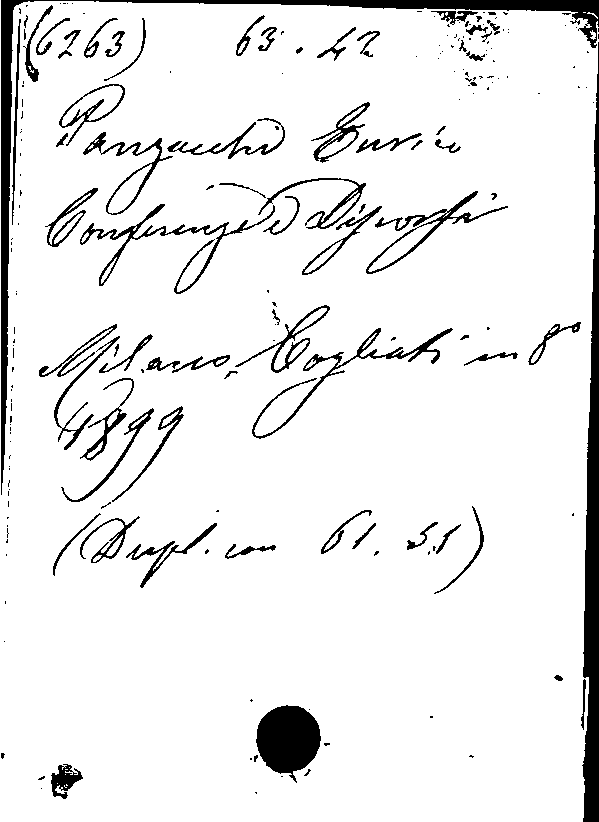 (6263) 63. 42
Panzacchi Enrico
Conferenze e Discorsi
Milano, Cogliati in 8º
1899
(Dupl. con 61. 51)